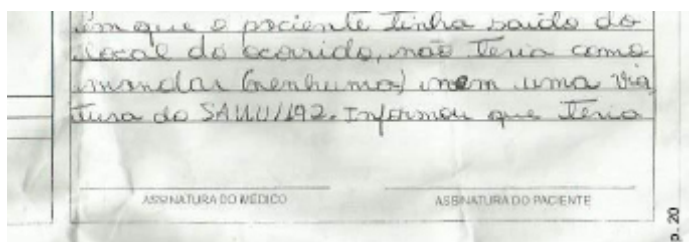 em que o paciente tinha saido do
local do ocorrido, não teria como
mandar (nenhuma) nem uma via
tura do SAMU/192. Informou que teria
ASSINATURA DO MÉDICO
ASSINATURA DO PACIENTE
p. 20